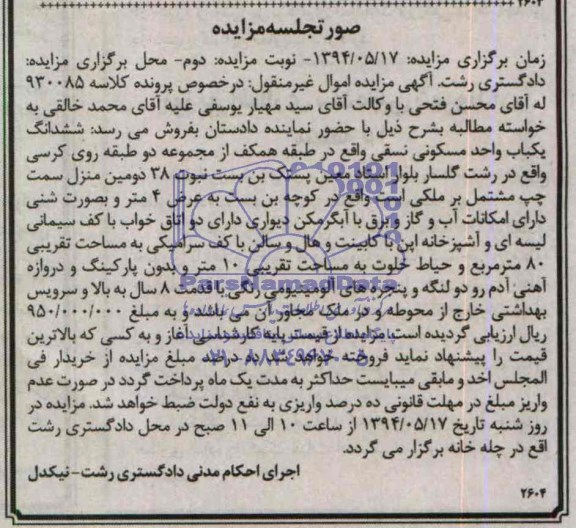 ۲۶۰۳
صورتجلسه مزایده
زمان برگزاری مزایده: ۱۳۹۴/۰۵/۱۷- نوبت مزایده: دوم- محل برگزاری مزایده:
دادگستری رشت. آگهی مزایده اموال غیرمنقول: درخصوص پرونده کلاسه ۹۳۰۰۸۵
له آقای محسن فتحی با وکالت آقای سید مهیار یوسفی علیه آقای محمد خالقی به
خواسته مطالبه بشرح ذیل با حضور نماینده دادستان بفروش می رسد: ششدانگ
یکباب واحد مسکونی نسقی واقع در طبقه همکف از مجموعه دو طبقه روی کرسی
واقع در رشت گلسار بلوار استاد معین پستک بن بست نبوت ۳۸ دومین منزل سمت
چپ مشتمل بر ملکی است واقع در کوچه بن بست به عرض ۴ متر و بصورت شنی
دارای امکانات آب و گاز و برق با آبگرمکن دیواری دارای دو اتاق خواب با کف سیمانی
لیسه ای و آشپزخانه اپن با کابینت و هال و سالن با کف سرامیکی به مساحت تقریبی
۸۰ مترمربع و حیاط خلوت به مساحت تقریبی ۱۰ متر و بدون پارکینگ و دروازه
آهنی آدم رو دو لنگه و پنجره های آلومینیومی رنگی با قدمت ۸ سال به بالا و سرویس
بهداشتی خارج از محوطه و در ملک مجاور آن می باشد و به مبلغ ۹۵۰/۰۰۰/۰۰۰
ریال ارزیابی گردیده است. مزایده از قیمت پایه کارشناسی آغاز و به کسی که بالاترین
قیمت را پیشنهاد نماید فروخته خواهد شد. ده درصد مبلغ مزایده از خریدار فی
المجلس اخذ و مابقی میبایست حداکثر به مدت یک ماه پرداخت گردد در صورت عدم
واریز مبلغ در مهلت قانونی ده درصد واریزی به نفع دولت ضبط خواهد شد. مزایده در
روز شنبه تاریخ ۱۳۹۴/۰۵/۱۷ از ساعت ۱۰ الی ۱۱ صبح در محل دادگستری رشت
اقع در چله خانه برگزار می گردد.
اجرای احکام مدنی دادگستری رشت- نیکدل
۲۶۰۴
ParsNamadData